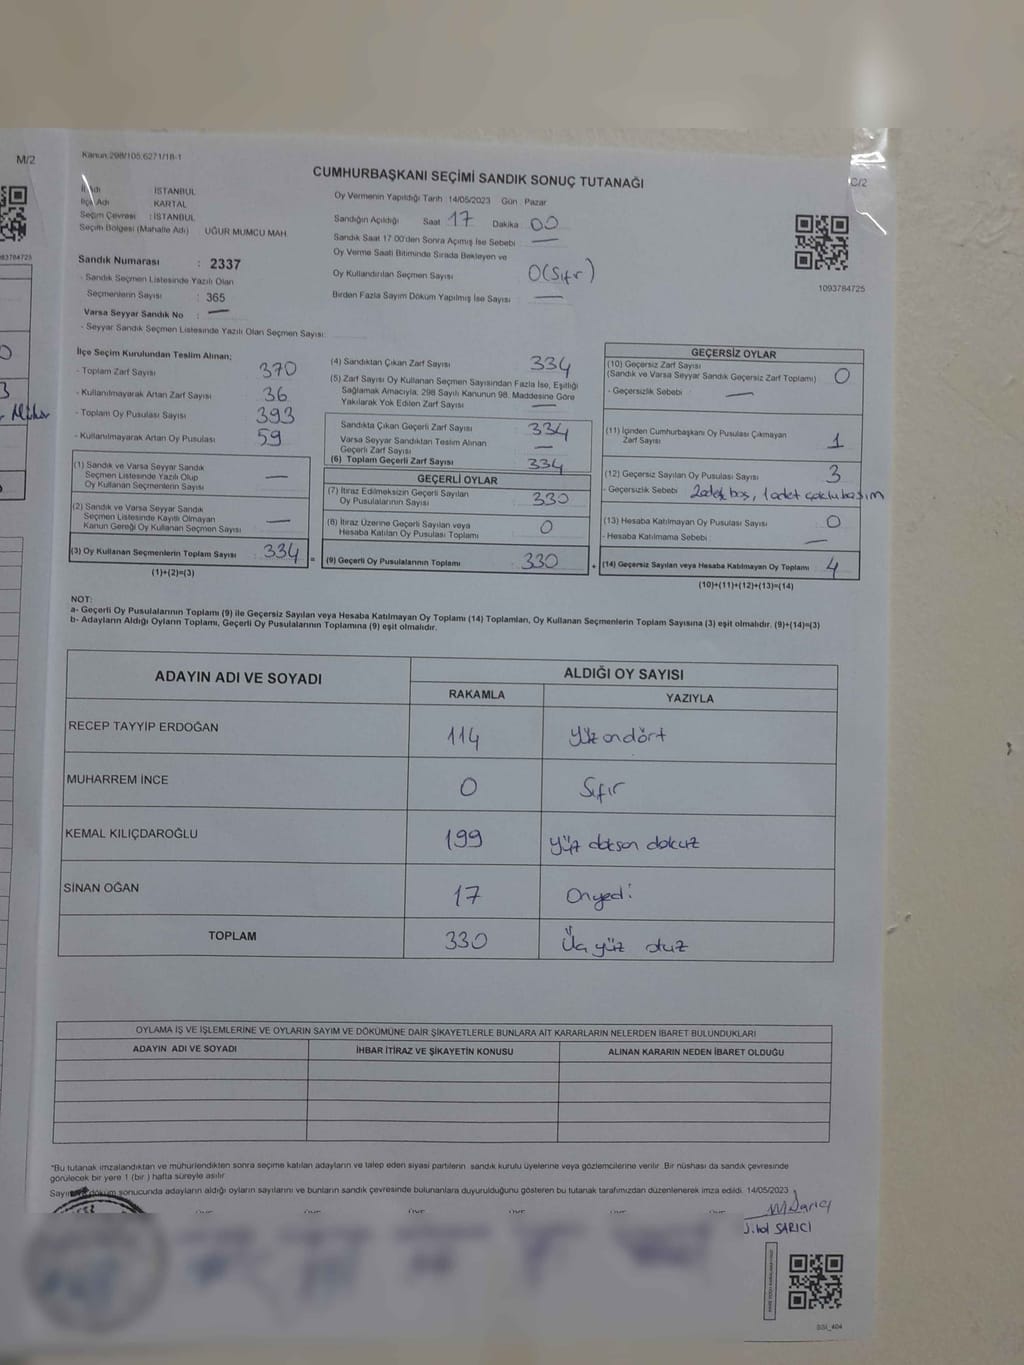 M/2
Kanun:298/105,6271/18-1
CUMHURBAŞKANI SEÇİMİ SANDIK SONUÇ TUTANAĞI
C/2
İl Adı İSTANBUL
İlçe Adı KARTAL
Seçim Çevresi : İSTANBUL
Seçim Bölgesi (Mahalle Adı) : UĞUR MUMCU MAH.
Sandık Numarası : 2337
- Sandık Seçmen Listesinde Yazılı Olan
Seçmenlerin Sayısı : 365
Varsa Seyyar Sandık No : —
- Seyyar Sandık Seçmen Listesinde Yazılı Olan Seçmen Sayısı:
Oy Vermenin Yapıldığı Tarih 14/05/2023 Gün : Pazar
Sandığın Açıldığı Saat 17 Dakika 00
Sandık Saat 17:00'den Sonra Açılmış İse Sebebi —
Oy Verme Saati Bitiminde Sırada Bekleyen ve
Oy Kullandırılan Seçmen Sayısı 0(Sıfır)
Birden Fazla Sayım Döküm Yapılmış İse Sayısı : —
1093784725
İlçe Seçim Kurulundan Teslim Alınan;
- Toplam Zarf Sayısı : 370
- Kullanılmayarak Artan Zarf Sayısı : 36
- Toplam Oy Pusulası Sayısı : 393
- Kullanılmayarak Artan Oy Pusulası : 59
(1) Sandık ve Varsa Seyyar Sandık
Seçmen Listesinde Yazılı Olup
Oy Kullanan Seçmenlerin Sayısı : —
(2) Sandık ve Varsa Seyyar Sandık
Seçmen Listesinde Kayıtlı Olmayan
Kanun Gereği Oy Kullanan Seçmen Sayısı : —
(3) Oy Kullanan Seçmenlerin Toplam Sayısı : 334
(1)+(2)=(3)
(4) Sandıktan Çıkan Zarf Sayısı : 334
(5) Zarf Sayısı Oy Kullanan Seçmen Sayısından Fazla İse, Eşitliği
Sağlamak Amacıyla; 298 Sayılı Kanunun 98. Maddesine Göre
Yakılarak Yok Edilen Zarf Sayısı : —
Sandıkta Çıkan Geçerli Zarf Sayısı : 334
Varsa Seyyar Sandıktan Teslim Alınan
Geçerli Zarf Sayısı : —
(6) Toplam Geçerli Zarf Sayısı : 334
GEÇERLİ OYLAR
(7) İtiraz Edilmeksizin Geçerli Sayılan
Oy Pusulalarının Sayısı : 330
(8) İtiraz Üzerine Geçerli Sayılan veya
Hesaba Katılan Oy Pusulası Toplamı : 0
= (9) Geçerli Oy Pusulalarının Toplamı : 330
GEÇERSİZ OYLAR
(10) Geçersiz Zarf Sayısı
(Sandık ve Varsa Seyyar Sandık Geçersiz Zarf Toplamı) : 0
- Geçersizlik Sebebi : —
(11) İçinden Cumhurbaşkanı Oy Pusulası Çıkmayan
Zarf Sayısı : 1
(12) Geçersiz Sayılan Oy Pusulası Sayısı : 3
- Geçersizlik Sebebi : 2 adet boş, 1 adet çoklu basım
(13) Hesaba Katılmayan Oy Pusulası Sayısı : 0
- Hesaba Katılmama Sebebi : —
+ (14) Geçersiz Sayılan veya Hesaba Katılmayan Oy Toplamı : 4
(10)+(11)+(12)+(13)=(14)
NOT:
a- Geçerli Oy Pusulalarının Toplamı (9) ile Geçersiz Sayılan veya Hesaba Katılmayan Oy Toplamı (14) Toplamları, Oy Kullanan Seçmenlerin Toplam Sayısına (3) eşit olmalıdır. (9)+(14)=(3)
b- Adayların Aldığı Oyların Toplamı, Geçerli Oy Pusulalarının Toplamına (9) eşit olmalıdır.
ADAYIN ADI VE SOYADI ALDIĞI OY SAYISI
RAKAMLA YAZIYLA
RECEP TAYYİP ERDOĞAN 114 Yüz ondört
MUHARREM İNCE 0 Sıfır
KEMAL KILIÇDAROĞLU 199 yüz doksan dokuz
SİNAN OĞAN 17 Onyedi
TOPLAM 330 Üç yüz otuz
OYLAMA İŞ VE İŞLEMLERİNE VE OYLARIN SAYIM VE DÖKÜMÜNE DAİR ŞİKAYETLERLE BUNLARA AİT KARARLARIN NELERDEN İBARET BULUNDUKLARI
ADAYIN ADI VE SOYADI İHBAR İTİRAZ VE ŞİKAYETİN KONUSU ALINAN KARARIN NEDEN İBARET OLDUĞU
*Bu tutanak imzalandıktan ve mühürlendikten sonra seçime katılan adayların ve talep eden siyasi partilerin sandık kurulu üyelerine veya gözlemcilerine verilir. Bir nüshası da sandık çevresinde
görülecek bir yere 1 (bir) hafta süreyle asılır.
Sayım döküm sonucunda adayların aldığı oyların sayılarını ve bunların sandık çevresinde bulunanlara duyurulduğunu gösteren bu tutanak tarafımızdan düzenlenerek imza edildi. 14/05/2023
SARICI
SSİ_404